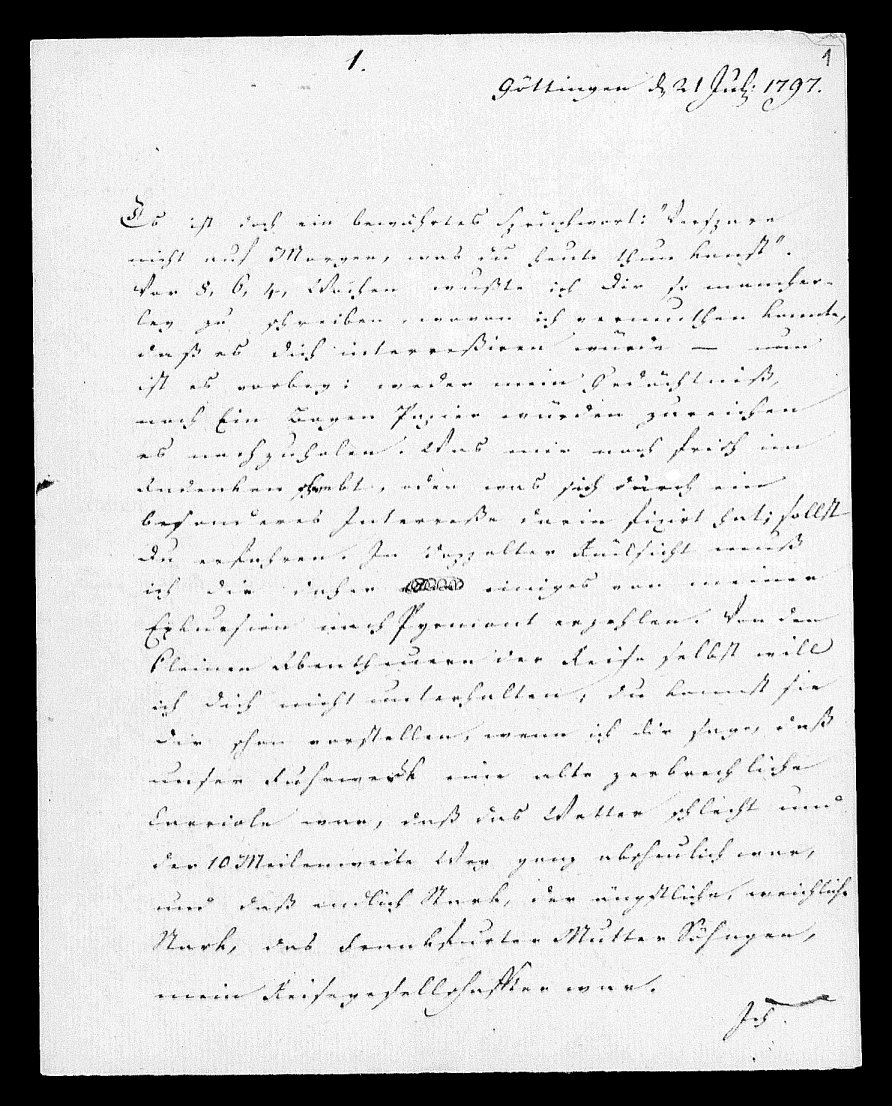 1.
1
Göttingen d 21 Jul: 1797.
Es ist doch ein bewährtes Sprüchwort: "Verspare
nicht auf Morgen, was du heute thun kanst".
Vor 8, 6, 4, Wochen wußte ich Dir so mancher-
ley zu schreiben, wovon ich vermuthen konnte,
daß es dich interreßiren würde — nun
ist es vorbey: weder mein Gedächtniß,
noch Ein Bogen Papier würden zureichen
es nachzuholen. Was mir noch frisch im
Andenken schwebt, oder was sich durch ein
besonderes Interreße darin fixirt hat, sollst
Du erfahren. In doppelter Rücksicht muß
ich dir daher einiges von meiner
Exkursion nach Pyrmont erzehlen. Von den
kleinen Abentheuern der Reise selbst will
ich dich nicht unterhalten, du kannst sie
dir schon vorstellen, wenn ich dir sage, daß
unser Fuhrwerk eine alte zerbrechliche
Carriole war, daß das Wetter schlecht und
der 10 Meilenweite Weg ganz abscheulich war,
und daß endlich Stark, der ängstliche, weichliche
Stark, das Frankfurter Mutter Söhngen,
mein Reisegesellschafter war.
Ich